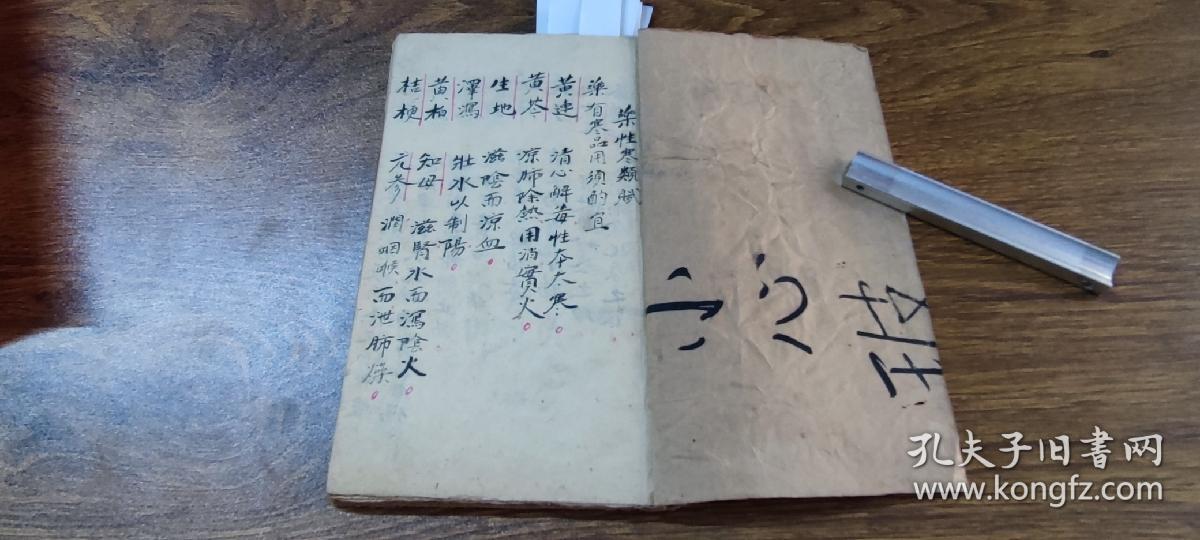 薬性寒類賦
薬有寒品用須酌宜
黄連 清心解毒性本大寒
黄芩 凉肺除熱用消實火
生地 滋陰而凉血
澤瀉 壯水以制陽
黄柏 知母 滋腎水而瀉陰火
桔梗 元參 潤咽喉而泄肺燥
孔夫子旧书网
www.kongfz.com